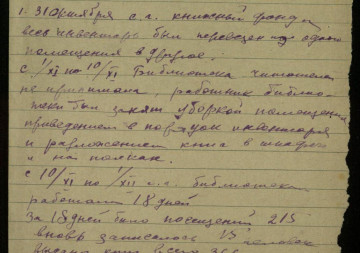 1. 31 октября с.г. книжный фонд и
весь инвентарь был переведен из одного
помещения в другое.
с 1/XI по 10/XI Библиотека читателей
не принимала, работник библио-
теки был занят уборкой помещения
приведением в порядок инвентаря
и разложением книг в шкафы
и на полках.
с 10/XI по 1/XII с.г. библиотека
работала 18 дней
За 18 дней было посещений 215
вновь записалось 15 человек
выдано книг всего